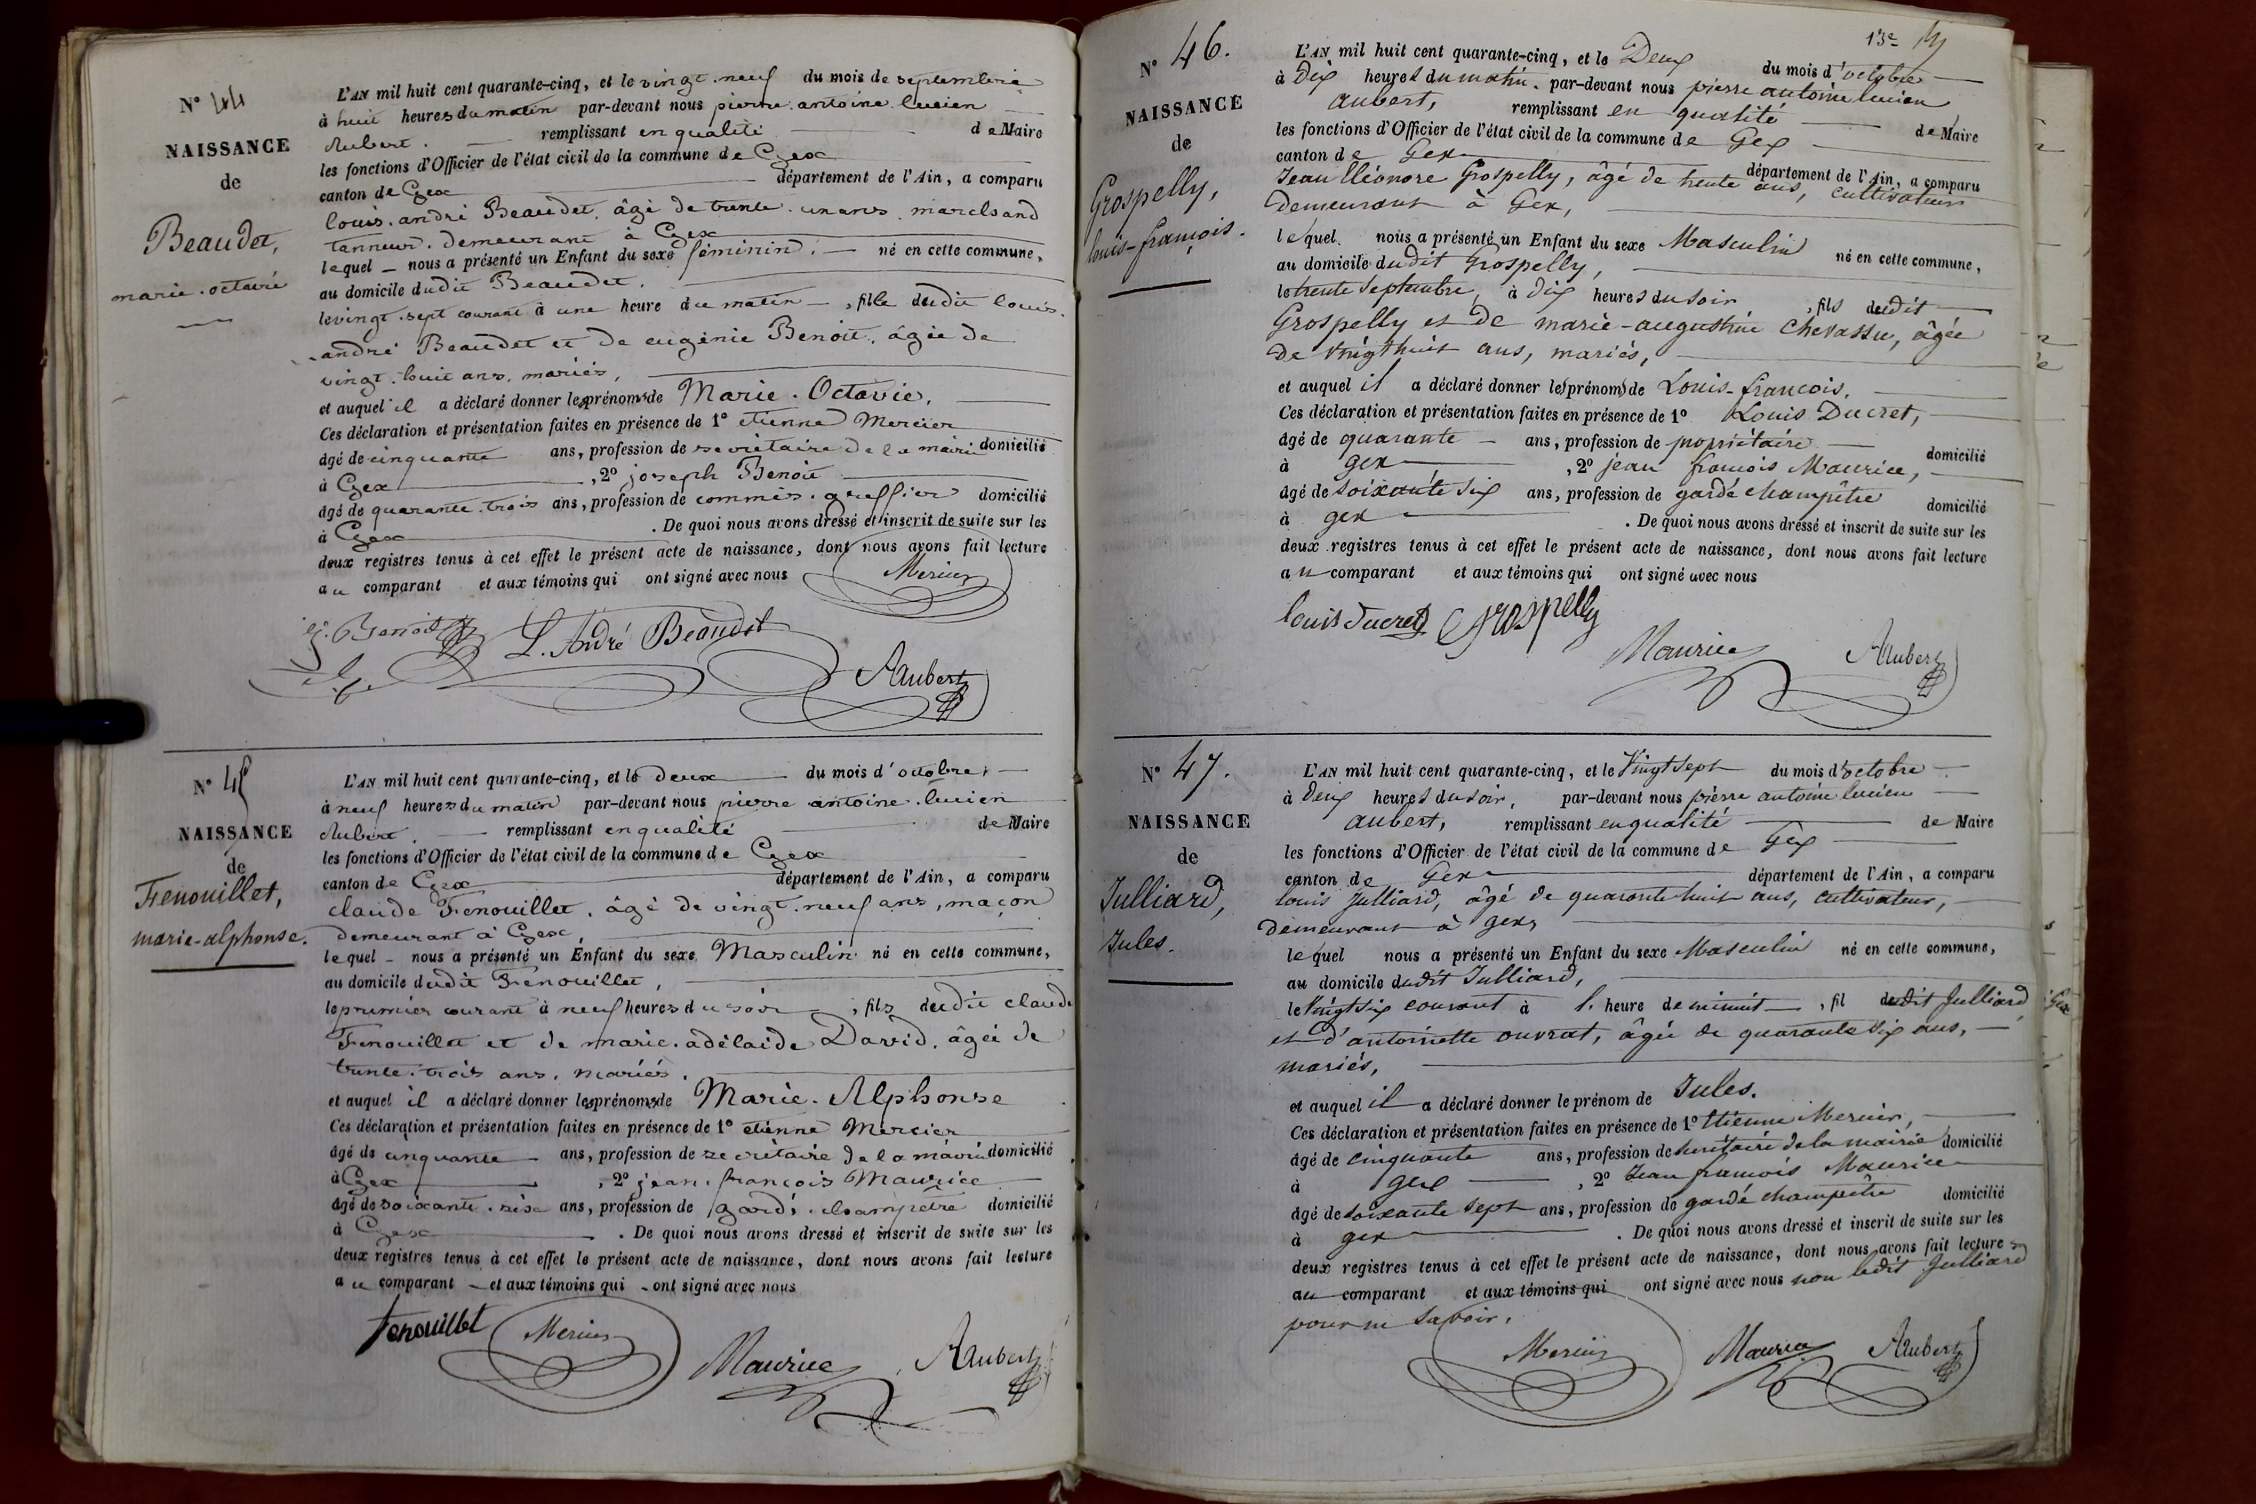 N° 44
NAISSANCE
de
Beaudet,
marie.octavie
L'AN mil huit cent quarante-cinq, et le vingt.neuf du mois de septembre
à huit heures du matin par-devant nous pierre.antoine.lucien
Aubert. remplissant en qualité de Maire
les fonctions d'Officier de l'état civil de la commune de Gex
canton de Gex département de l'Ain, a comparu
louis.andré Beaudet, âgé de trente.un ans, marchand
tanneur, demeurant à Gex
lequel nous a présenté un Enfant du sexe féminin, né en cette commune,
au domicile dudit Beaudet.
le vingt.sept courant à une heure du matin, fille dudit louis.
andré Beaudet et de eugénie Benoit, âgée de
vingt.huit ans, mariés,
et auquel il a déclaré donner les prénoms de Marie.Octavie.
Ces déclaration et présentation faites en présence de 1° etienne Mercier
âgé de cinquante ans, profession de secrétaire de la mairie domicilié
à Gex, 2° joseph Benoit
âgé de quarante.trois ans, profession de commis.greffier domicilié
à Gex. De quoi nous avons dressé et inscrit de suite sur les
deux registres tenus à cet effet le présent acte de naissance, dont nous avons fait lecture
au comparant et aux témoins qui ont signé avec nous
Mercier
J. Benoit L. André Beaudet
Aubert
N° 45
NAISSANCE
de
Fenouillet,
marie-alphonse.
L'AN mil huit cent quarante-cinq, et le deux du mois d'octobre
à neuf heures du matin par-devant nous pierre antoine.lucien
Aubert. remplissant en qualité de Maire
les fonctions d'Officier de l'état civil de la commune de Gex
canton de Gex département de l'Ain, a comparu
claude Fenouillet, âgé de vingt.neuf ans, maçon
demeurant à Gex,
lequel nous a présenté un Enfant du sexe Masculin né en cette commune,
au domicile dudit Fenouillet,
le premier courant à neuf heures du soir, fils dudit claude
Fenouillet et de marie.adélaide David, âgée de
trente.trois ans, mariés.
et auquel il a déclaré donner les prénoms de Marie.Alphonse
Ces déclaration et présentation faites en présence de 1° etienne Mercier
âgé de cinquante ans, profession de secrétaire de la mairie domicilié
à Gex, 2° jean.françois Maurice
âgé de soixante.six ans, profession de garde.champêtre domicilié
à Gex. De quoi nous avons dressé et inscrit de suite sur les
deux registres tenus à cet effet le présent acte de naissance, dont nous avons fait lecture
au comparant et aux témoins qui ont signé avec nous
fenouillet Mercier
Maurice Aubert
13e
N° 46.
NAISSANCE
de
Grospelly,
louis-françois.
L'AN mil huit cent quarante-cinq, et le Deux du mois d'octobre
à Dix heures du matin, par-devant nous pierre antoine lucien
aubert, remplissant en qualité de Maire
les fonctions d'Officier de l'état civil de la commune de Gex
canton de Gex département de l'Ain, a comparu
Jean Eléonore Grospelly, âgé de trente ans, cultivateur
Demeurant à Gex,
lequel nous a présenté un Enfant du sexe Masculin né en cette commune,
au domicile dudit Grospelly,
le trente Septembre, à Dix heures du soir, fils dudit
Grospelly et De marie-augustine Chevassu, âgée
de vingt huit ans, mariés,
et auquel il a déclaré donner les prénoms de Louis-françois.
Ces déclaration et présentation faites en présence de 1° Louis Ducret,
âgé de quarante ans, profession de propriétaire domicilié
à gex, 2° jean françois Maurice,
âgé de soixante six ans, profession de garde champêtre domicilié
à gex. De quoi nous avons dressé et inscrit de suite sur les
deux registres tenus à cet effet le présent acte de naissance, dont nous avons fait lecture
au comparant et aux témoins qui ont signé avec nous
louis ducret Grospelly
Maurice Aubert
N° 47.
NAISSANCE
de
Julliard,
Jules.
L'AN mil huit cent quarante-cinq, et le Vingt Sept du mois d'octobre
à deux heures du soir, par-devant nous pierre antoine lucien
aubert, remplissant en qualité de Maire
les fonctions d'Officier de l'état civil de la commune de Gex
canton de Gex département de l'Ain, a comparu
louis Julliard, âgé de quarante huit ans, cultivateur,
demeurant à gex,
lequel nous a présenté un Enfant du sexe Masculin né en cette commune,
au domicile dudit Julliard,
le Vingt Six courant à 1. heure de minuit, fil dudit Julliard
et d'antoinette ouvrat, âgée de quarante Six ans,
mariés,
et auquel il a déclaré donner le prénom de Jules.
Ces déclaration et présentation faites en présence de 1° Etienne Mercier,
âgé de cinquante ans, profession de secrétaire de la mairie domicilié
à gex, 2° Jean françois Maurice
âgé de soixante Sept ans, profession de garde champêtre domicilié
à gex. De quoi nous avons dressé et inscrit de suite sur les
deux registres tenus à cet effet le présent acte de naissance, dont nous avons fait lecture
au comparant et aux témoins qui ont signé avec nous non ledit Julliard
pour ne savoir.
Mercier Maurice Aubert